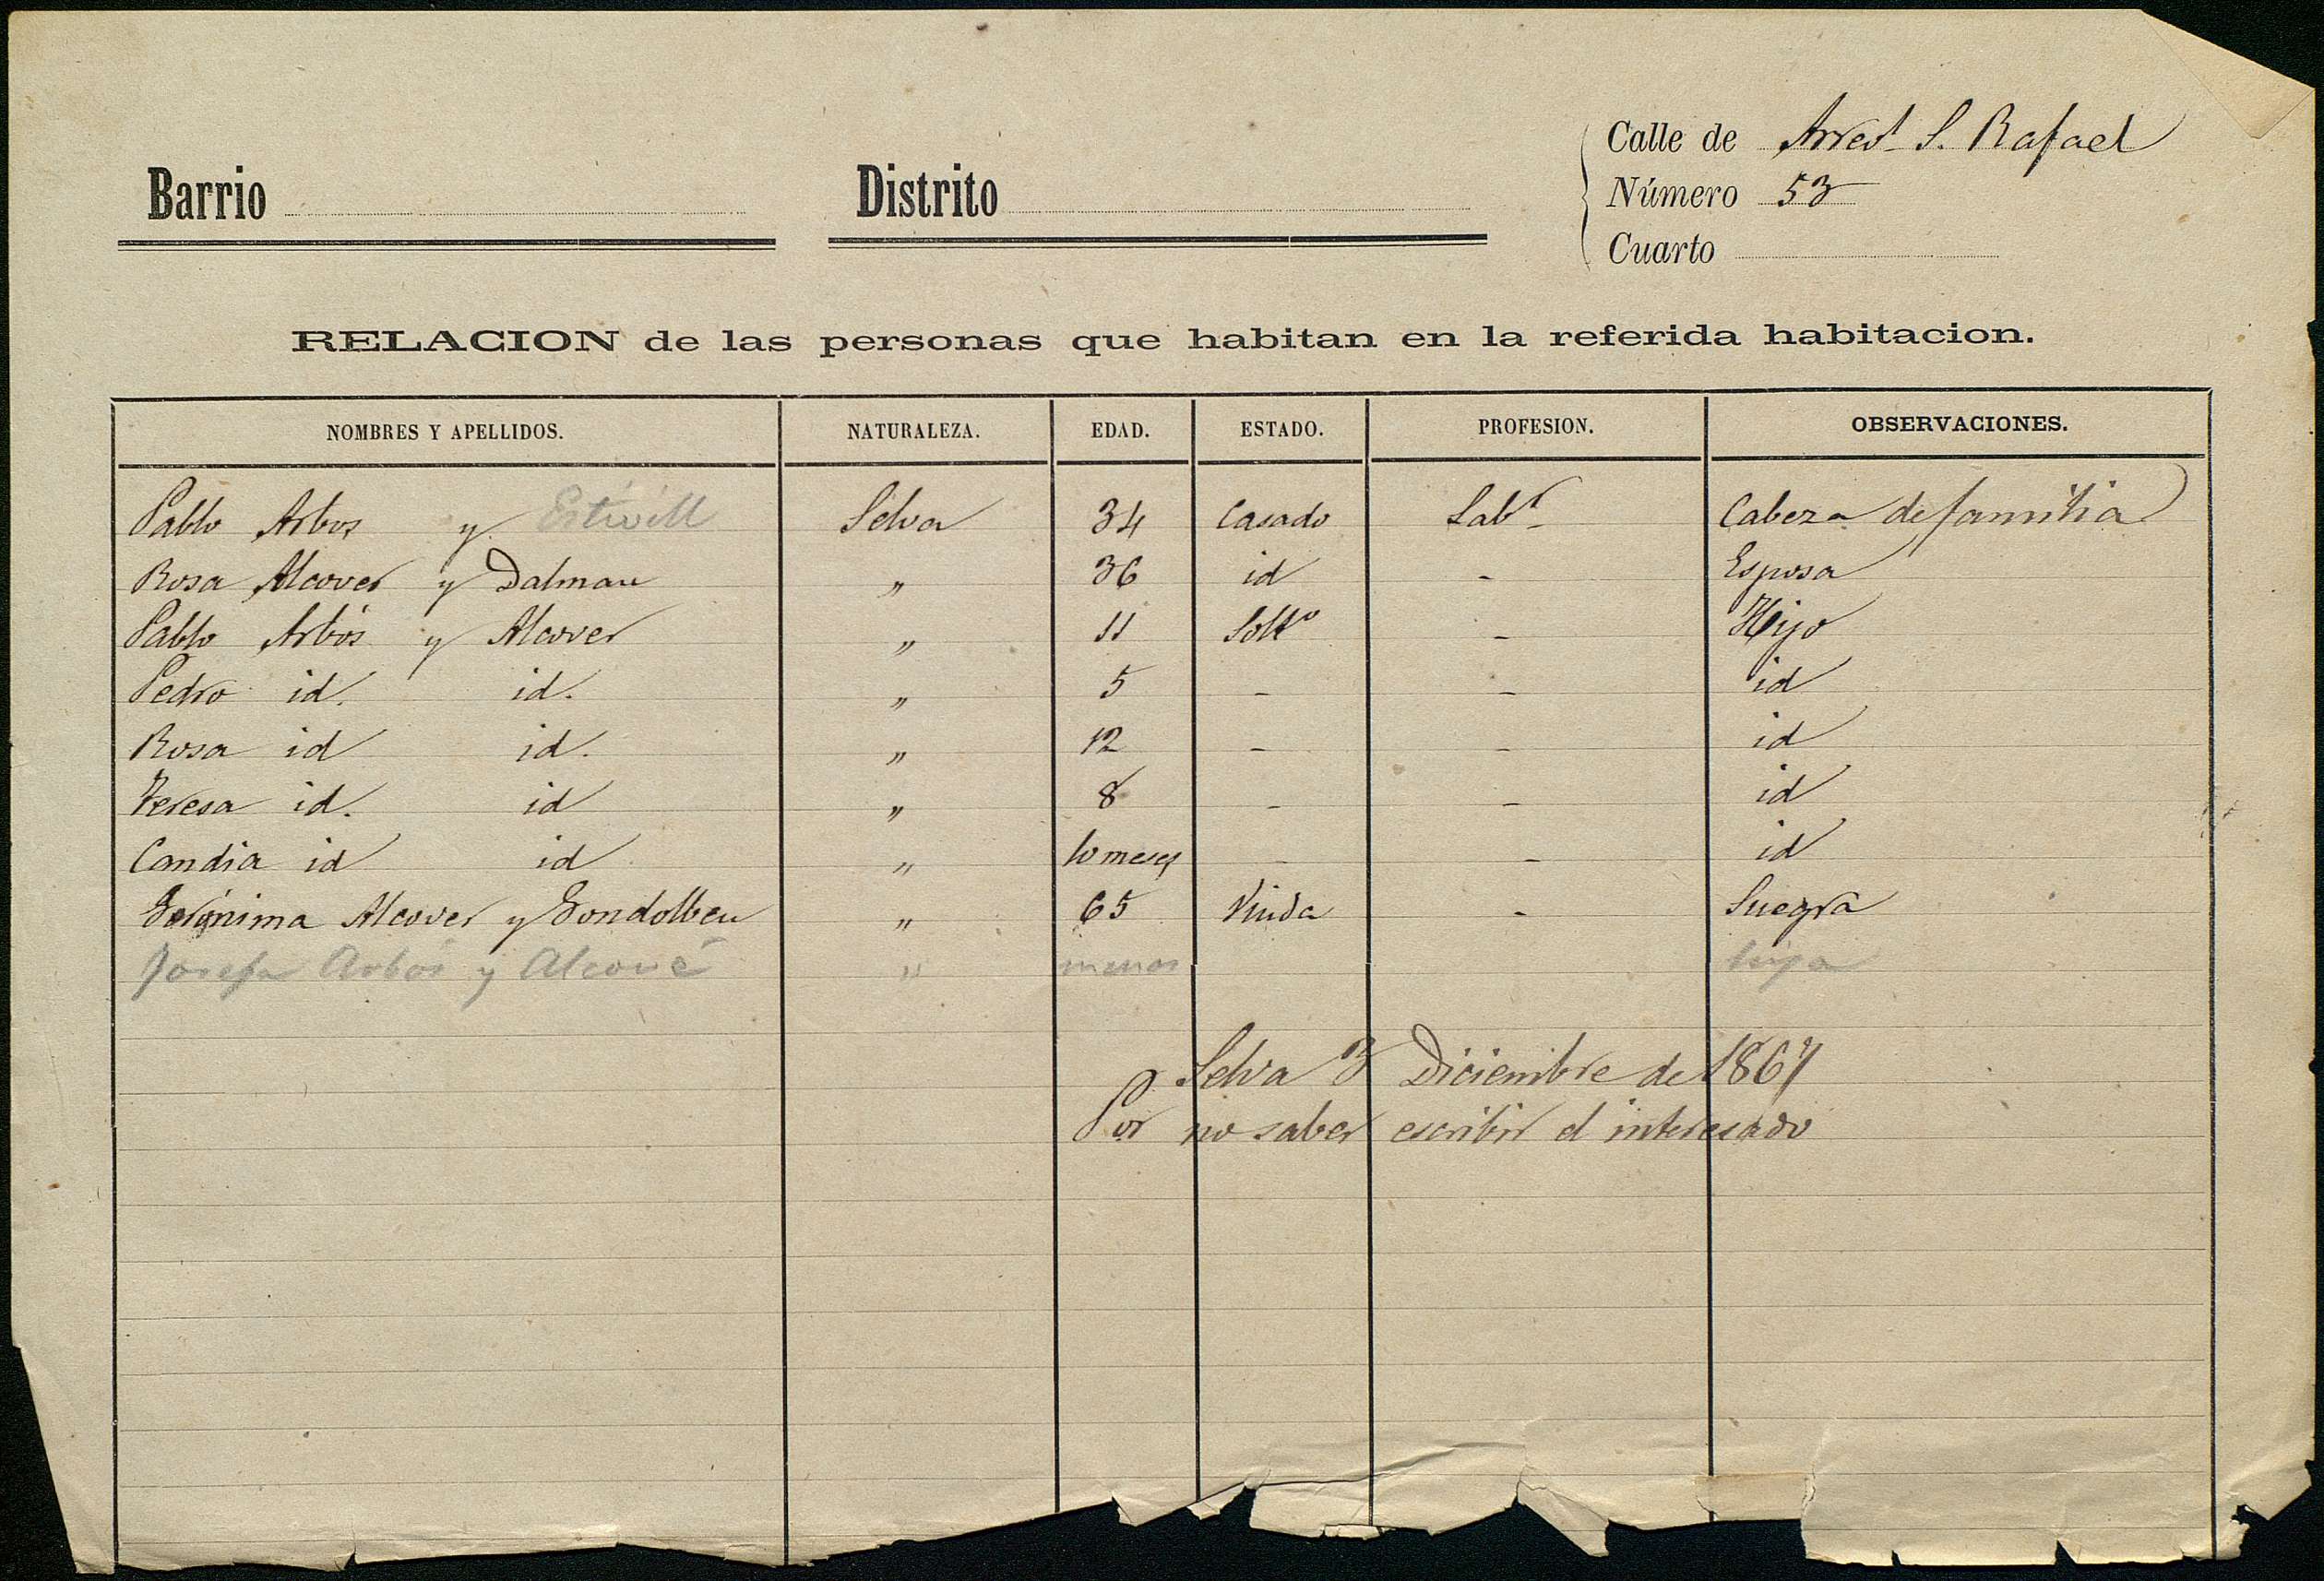 Calle de Arrel S. Rafael
Barrio
Distrito
Número 53
Cuarto
RELACION de las personas que habitan en la referida habitacion.
NOMBRES Y APELLIDOS. NATURALEZA. EDAD. ESTADO. PROFESION. OBSERVACIONES.
Pablo Arbos y Estivill Selva 34 Casado Labr Cabeza de familia
Rosa Alcover y Dalmau " 36 id - Esposa
Pablo Arbós y Alcover " 11 Soltº - Hijo
Pedro id. id. " 5 - - id
Rosa id id. " 12 - - id
Teresa id. id " 8 - - id
Candia id id " 10 meses - - id
Gerónima Alcover y Gondolbeu " 65 Viuda - Suegra
Josefa Arbós y Alcové " menos hija
Selva 3 Diciembre de 1867
Por no saber escribir el interesado